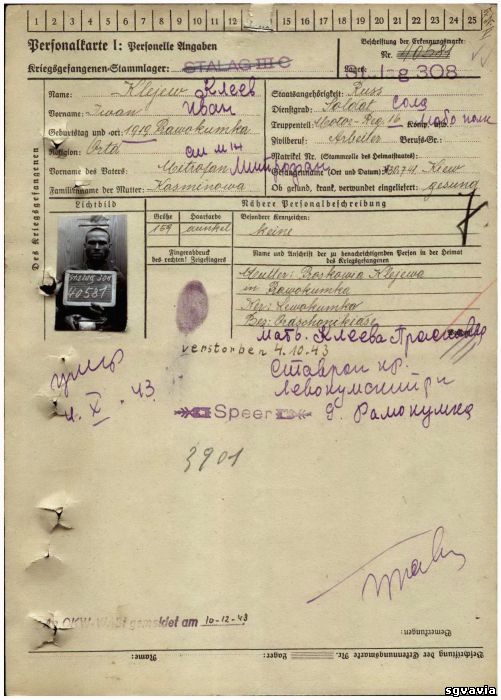 1 2 3 4 5 6 7 8 9 10 11 12 13 14 15 16 17 18 19 20 21 22 23 24 25
Personalkarte I: Personelle Angaben
Beschriftung der Erkennungsmarke
Nr. 40581
Kriegsgefangenen-Stammlager: STALAG III C
Lager: Stalag 308
Des Kriegsgefangenen
Name: Klejew Клеев
Vorname: Iwan Иван
Geburtstag und -ort: 1919
Religion: Orto
Vorname des Vaters: Metrofan Митрофан
Familienname der Mutter: Kosminowa
Staatsangehörigkeit: Russ
Dienstgrad: Soldat солд
Truppenteil: Motor-Reg. 16
Zivilberuf: Arbeiter Berufs-Gr.:
Matrikel Nr. (Stammrolle des Heimatstaates):
Gefangennahme (Ort und Datum): Kiew
Ob gesund, krank, verwundet eingeliefert: gesund
Lichtbild
Nähere Personalbeschreibung
Größe Haarfarbe Besondere Kennzeichen:
159 dunkel keine
Fingerabdruck
des rechten! Zeigefingers
Name und Anschrift der zu benachrichtigenden Person in der Heimat
des Kriegsgefangenen
40581
Mutter: Klejewa
in
Lewokumka
мать. Клеева
verstorben 4.10.43
Ставроп кр.
Левокумский р
умер
4. X. 43
Speer
3901
An OKW-WASt gemeldet am 10-12-43
Bemerkungen:
Name:
Beschriftung der Erkennungsmarke Nr.
Lager:
sgvavia